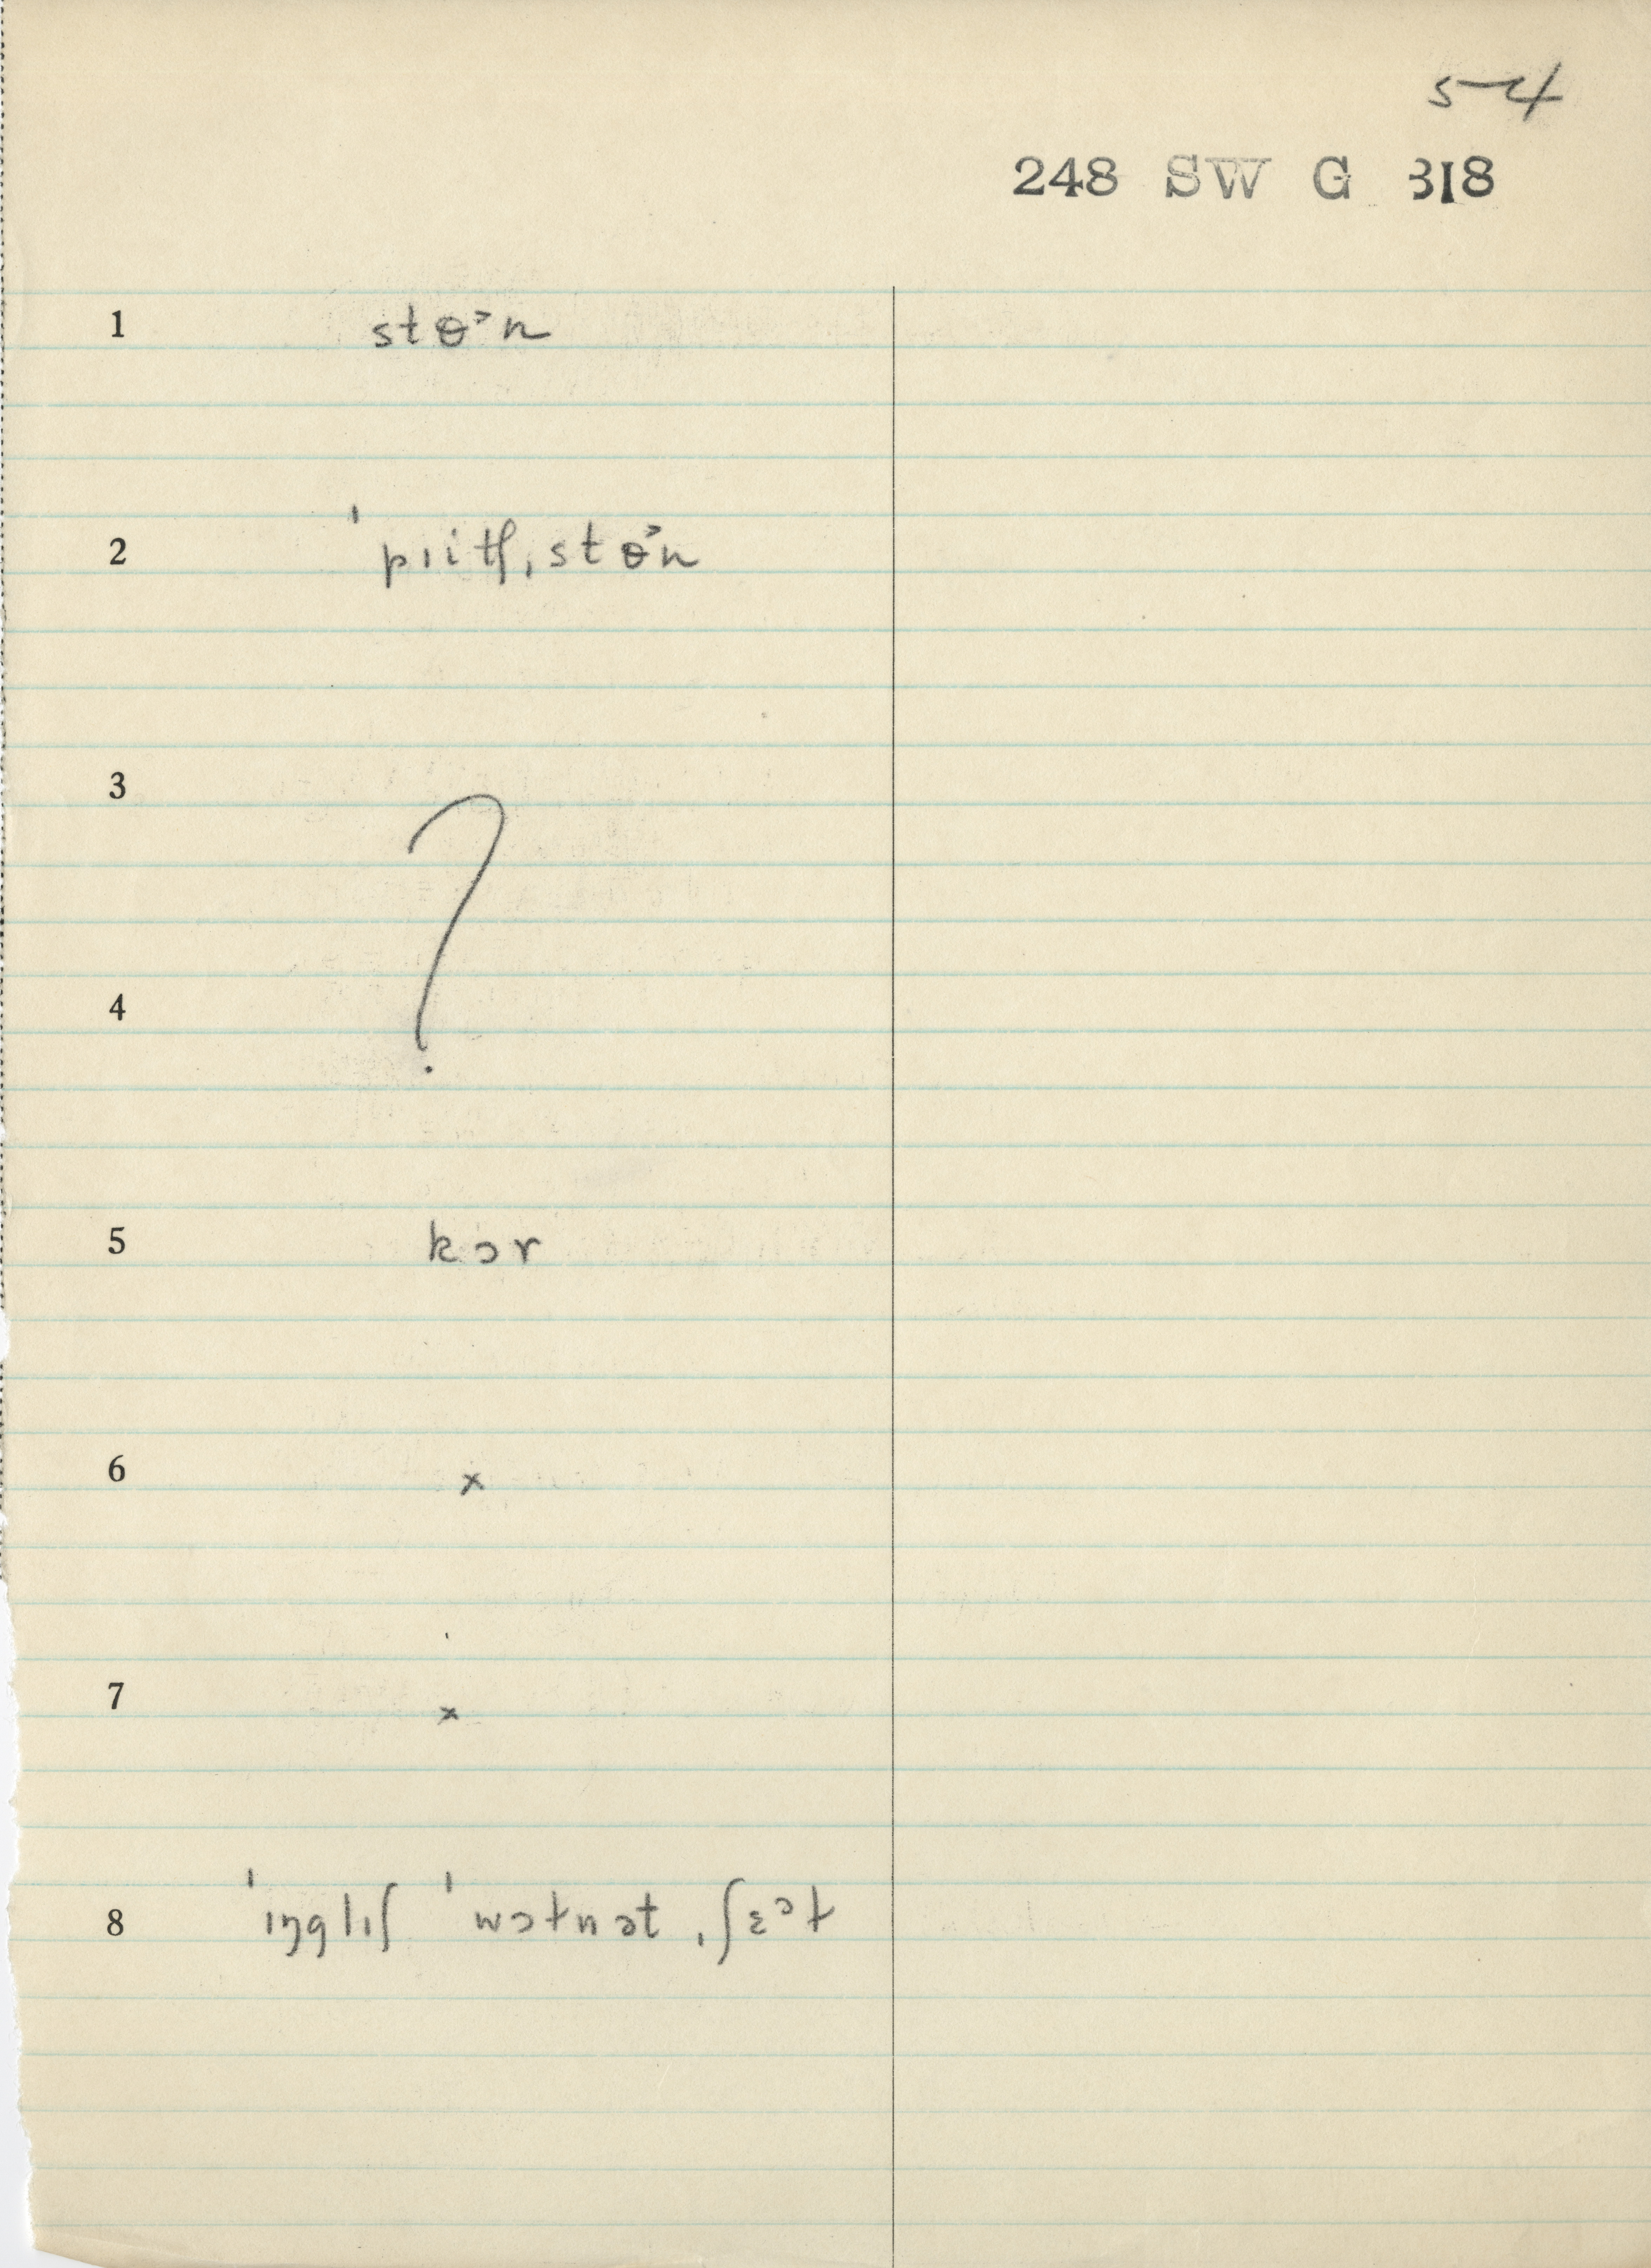 54
248 SW G 318
1 stɵ˃n
2 ˈpɪitʃˌstɵ˃n
3 ?
4
5 kɔr
6 x
7 x
8 ˈɪŋglɪʃ ˈwɔtnətˌʃɛᵊt